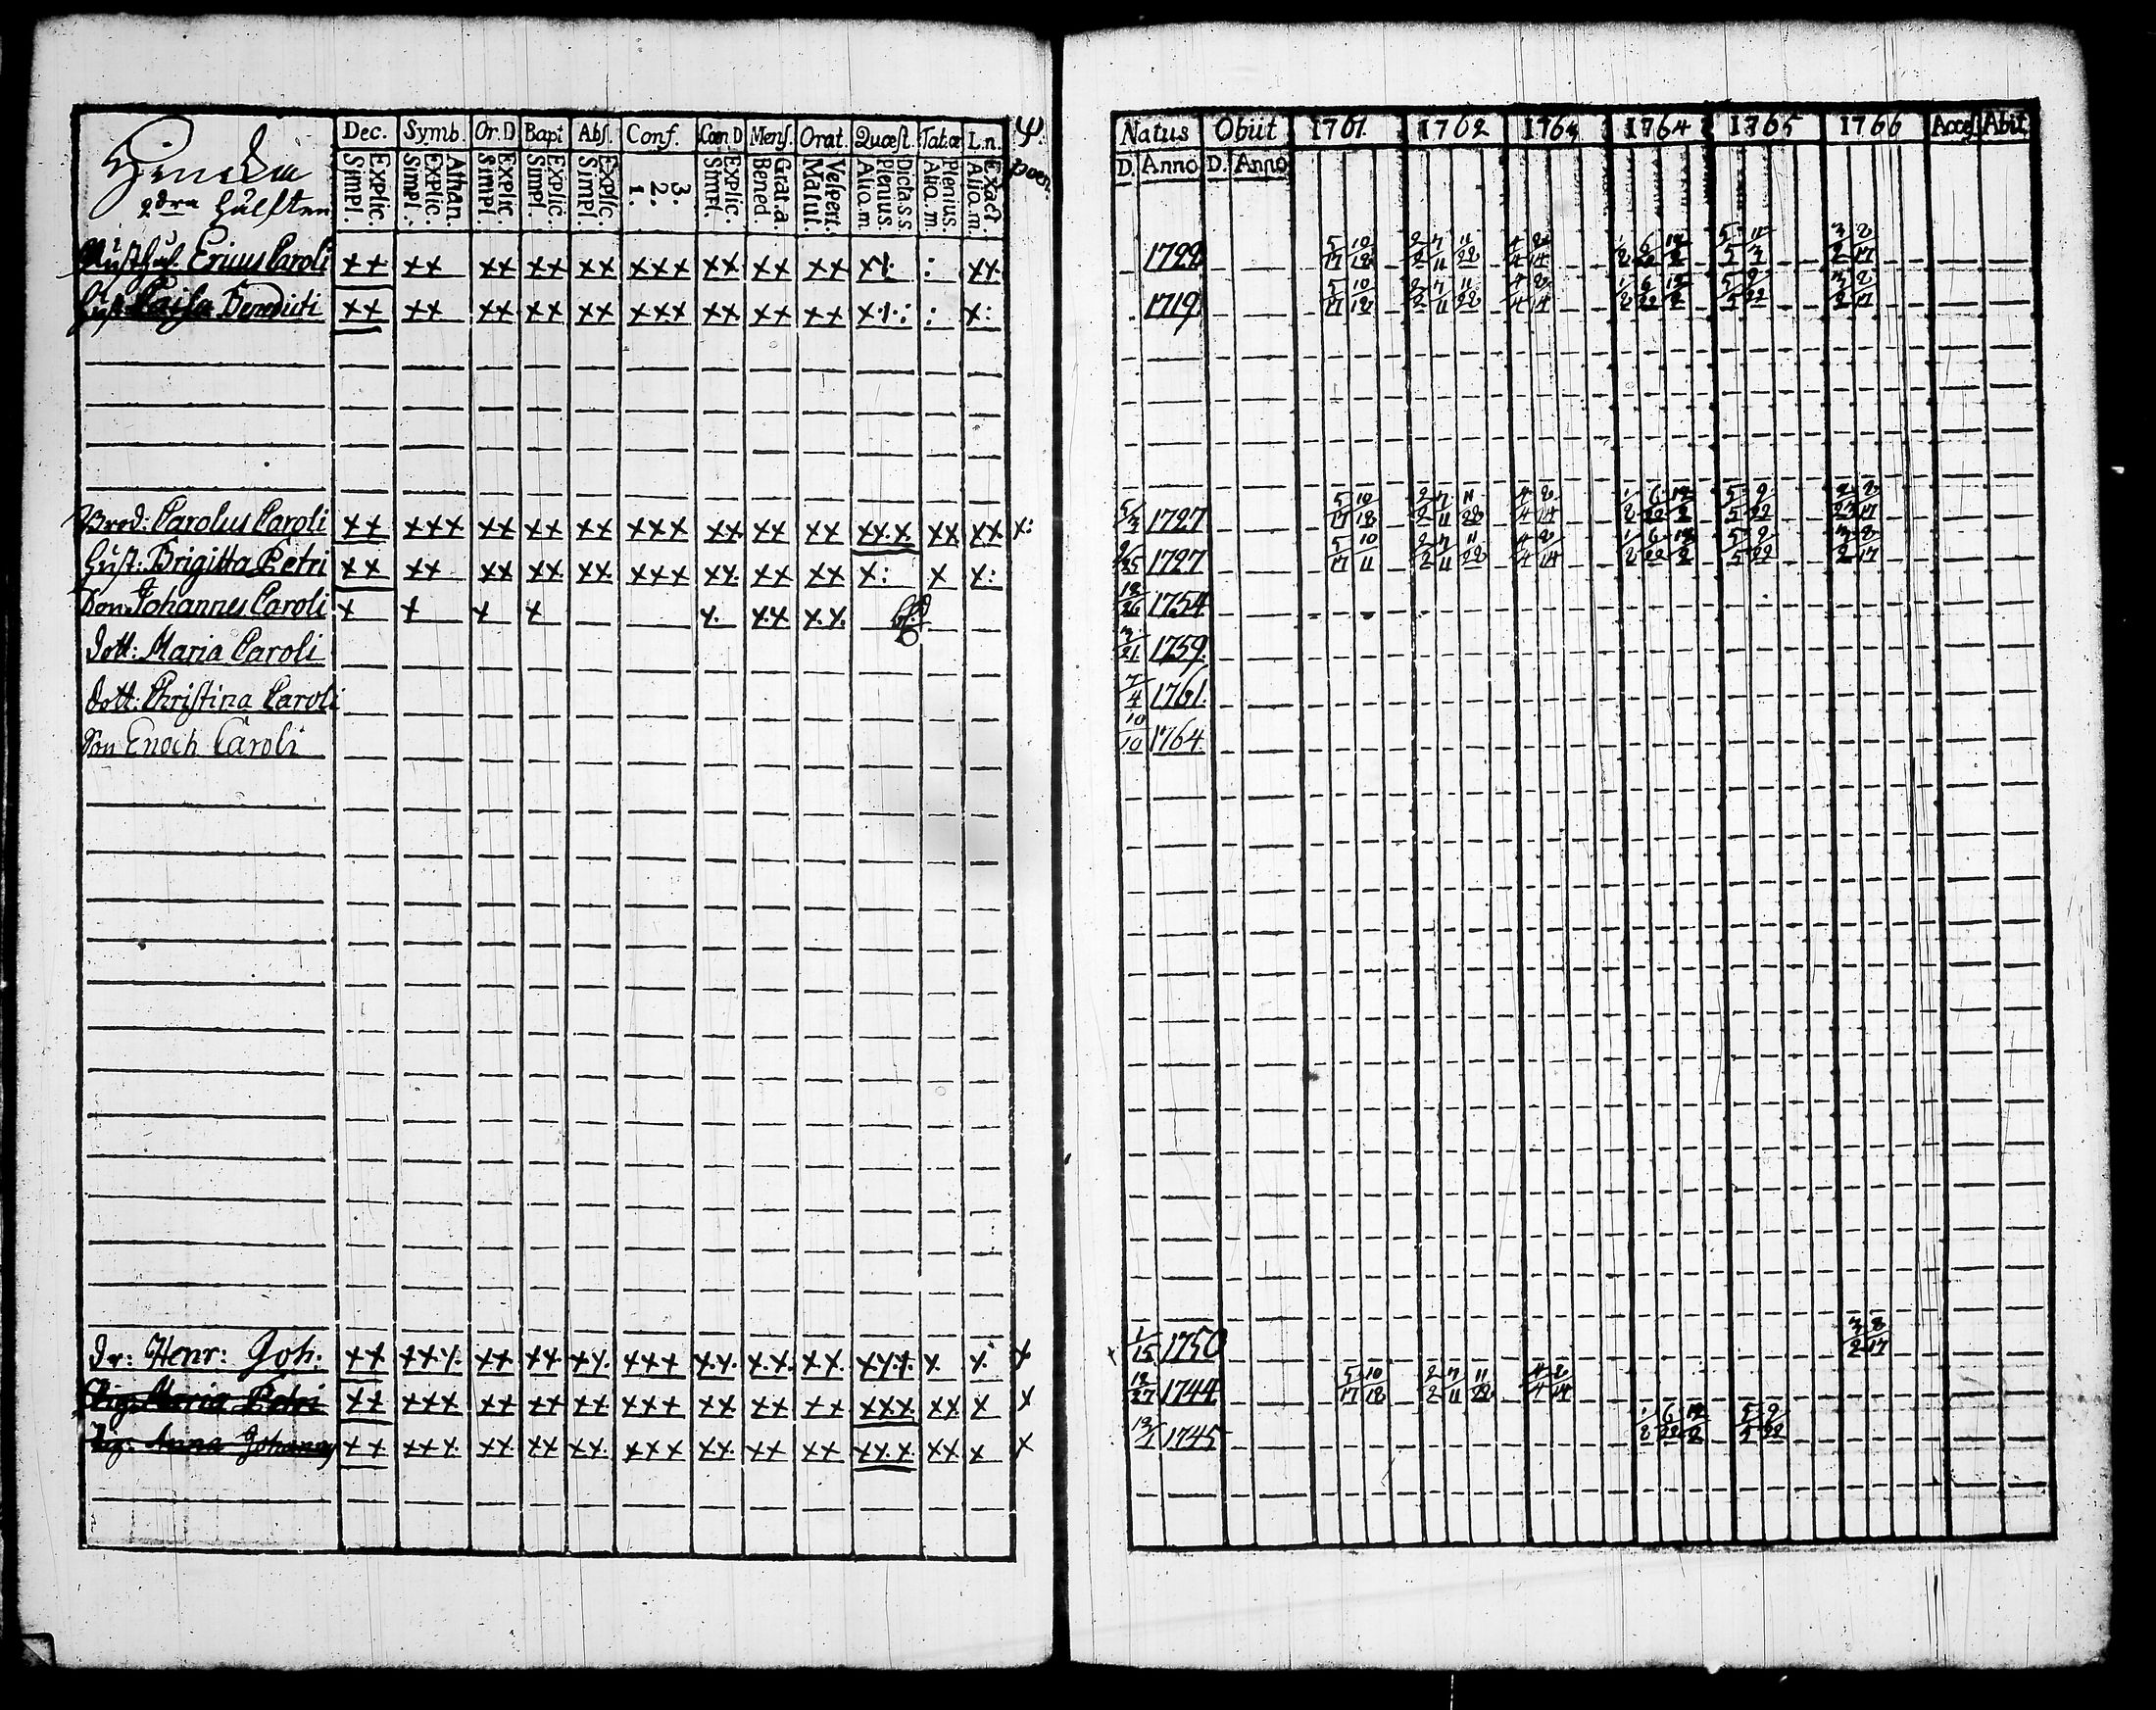 2dra hälften
Dec. Symb. Or.D Bapt Abſ. Conf. Cœn.D Menſ. Orat. Quæſt. Tat.æ L.n.
Simpl. Explic. Simpl. Explic. Athan. Simpl. Explic. Simpl. Explic. Simpl. Explic. 1. 2. 3. Simpl. Explic. Bened Grat.a Matut. Veſpert. Alio.m Plenius. Dicta.s.s Alio.m Plenius. Alio.m Exact.
Natus Obiit 1761. 1762 1763 1764 1765 1766 Acceſſ Abiit
D. Anno D. Anno
Ericus Caroli xx xx xx xx xx xxx xx xx xx xx. 1722 5/17 10/18 2/2 7/11 11/22 4/4 8/14
Caisa Benedicti xx xx xx xx xx xxx xx xx xx x: 1719 5/17 10/18 2/2 7/11 11/22 4/4 8/14 1/8 6/22 12/2 5/5 9/22 3/2 8/17
Brod: Carolus Caroli xx xxx xx xx xx xxx xx xx xx xx.x xx xx. x: 5/3 1727 5/17 10/18 2/2 7/11 11/28 4/4 8/14 1/8 6/22 12/2 5/5 9/22
Huſt: Brigitta Petri xx xx xx xx. xx. xxx xx. xx xx x: x x: 1727 5/17 10/11 2/2 7/11 11/22 4/4 8/14 1/8 6/22 12/2 5/5 9/22 3/2 8/17
Son Johannes Caroli x x x x x. x.x x.x. 12/26 1754
Dott: Maria Caroli 3/21 1759.
Dott: Chriſtina Caroli 7/4 1761.
Son Enoch Caroli 10/10 1764.
Dr: Henr: Joh: xx xx.x. xx. xx. xx. xxx x.x. x.x. x.x. xx.x. x. x. x 1/15 1750 3/2 8/17
Pig: Maria Petri xx xxx xx xx xx xxx xx xx xx xxx xx x x 12/27 1744 5/17 10/18 2/2 7/11 11/28 4/4 8/14
Pig: Anna Johannis xx xxx. xx. xx xx. xxx xx. xx xx xx.x xx x x 1745 1/8 6/22 12/2 5/5 9/22